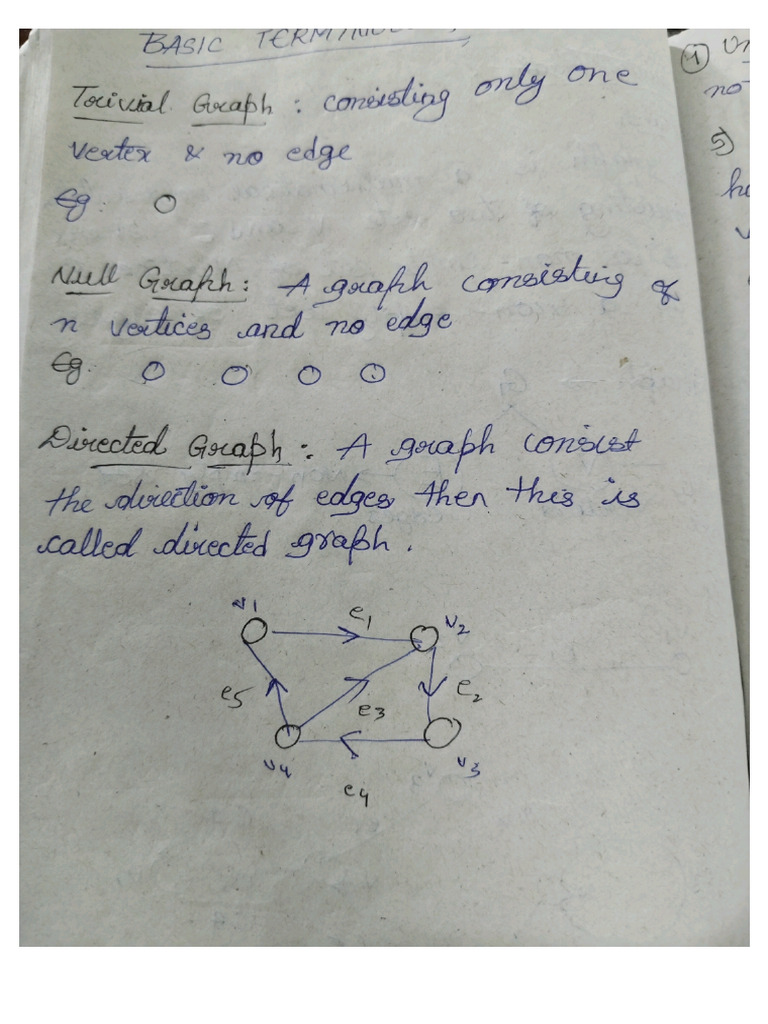 BASIC
Trivial Graph : consisting only one
vertex & no edge
Eg:
Null Graph : A graph consisting of
n vertices and no edge
Eg.
Directed Graph : A graph consist
the direction of edges then this is
called directed graph.
v1 e1 v2
e5 e3 e2
v4 v3
e4
4
no
5)